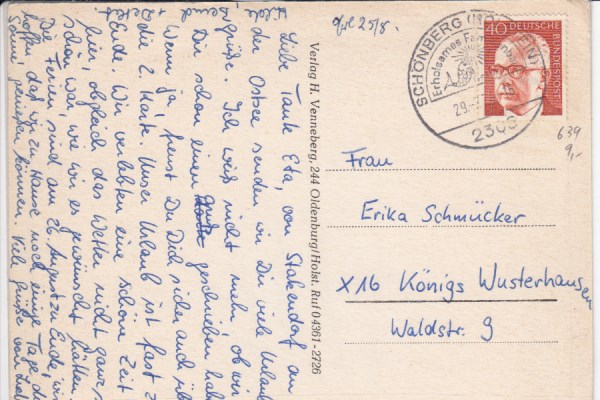 Liebe Tante Eta, von Stakendorf an
der Ostsee senden wir Dir viele Urlaubs
grüße. Ich weiß nicht mehr, ob wir
Dir schon einen geschrieben
Wenn ja, freust Du Dich sicher auch
die 2. Karte. Unser Urlaub ist fast
Ende. Wir verlebten eine schöne Zeit
hier, obgleich das Wetter nicht ganz
schön war, wie wir es gewünscht hätten
Die Ferien sind am 26. August zu Ende, wir
hoffen, daß wir zu Hause noch einige Tage
Sonne genießen können. Viele Grüße von
Verlag H. Venneberg, 244 Oldenburg/Holst. Ruf 04361-2726
25/8.
SCHÖNBERG
Erholsames
29.
40
DEUTSCHE
BUNDESPOST
639
9,-
Frau
Erika Schmücker
X16 Königs Wusterhausen
Waldstr. 9